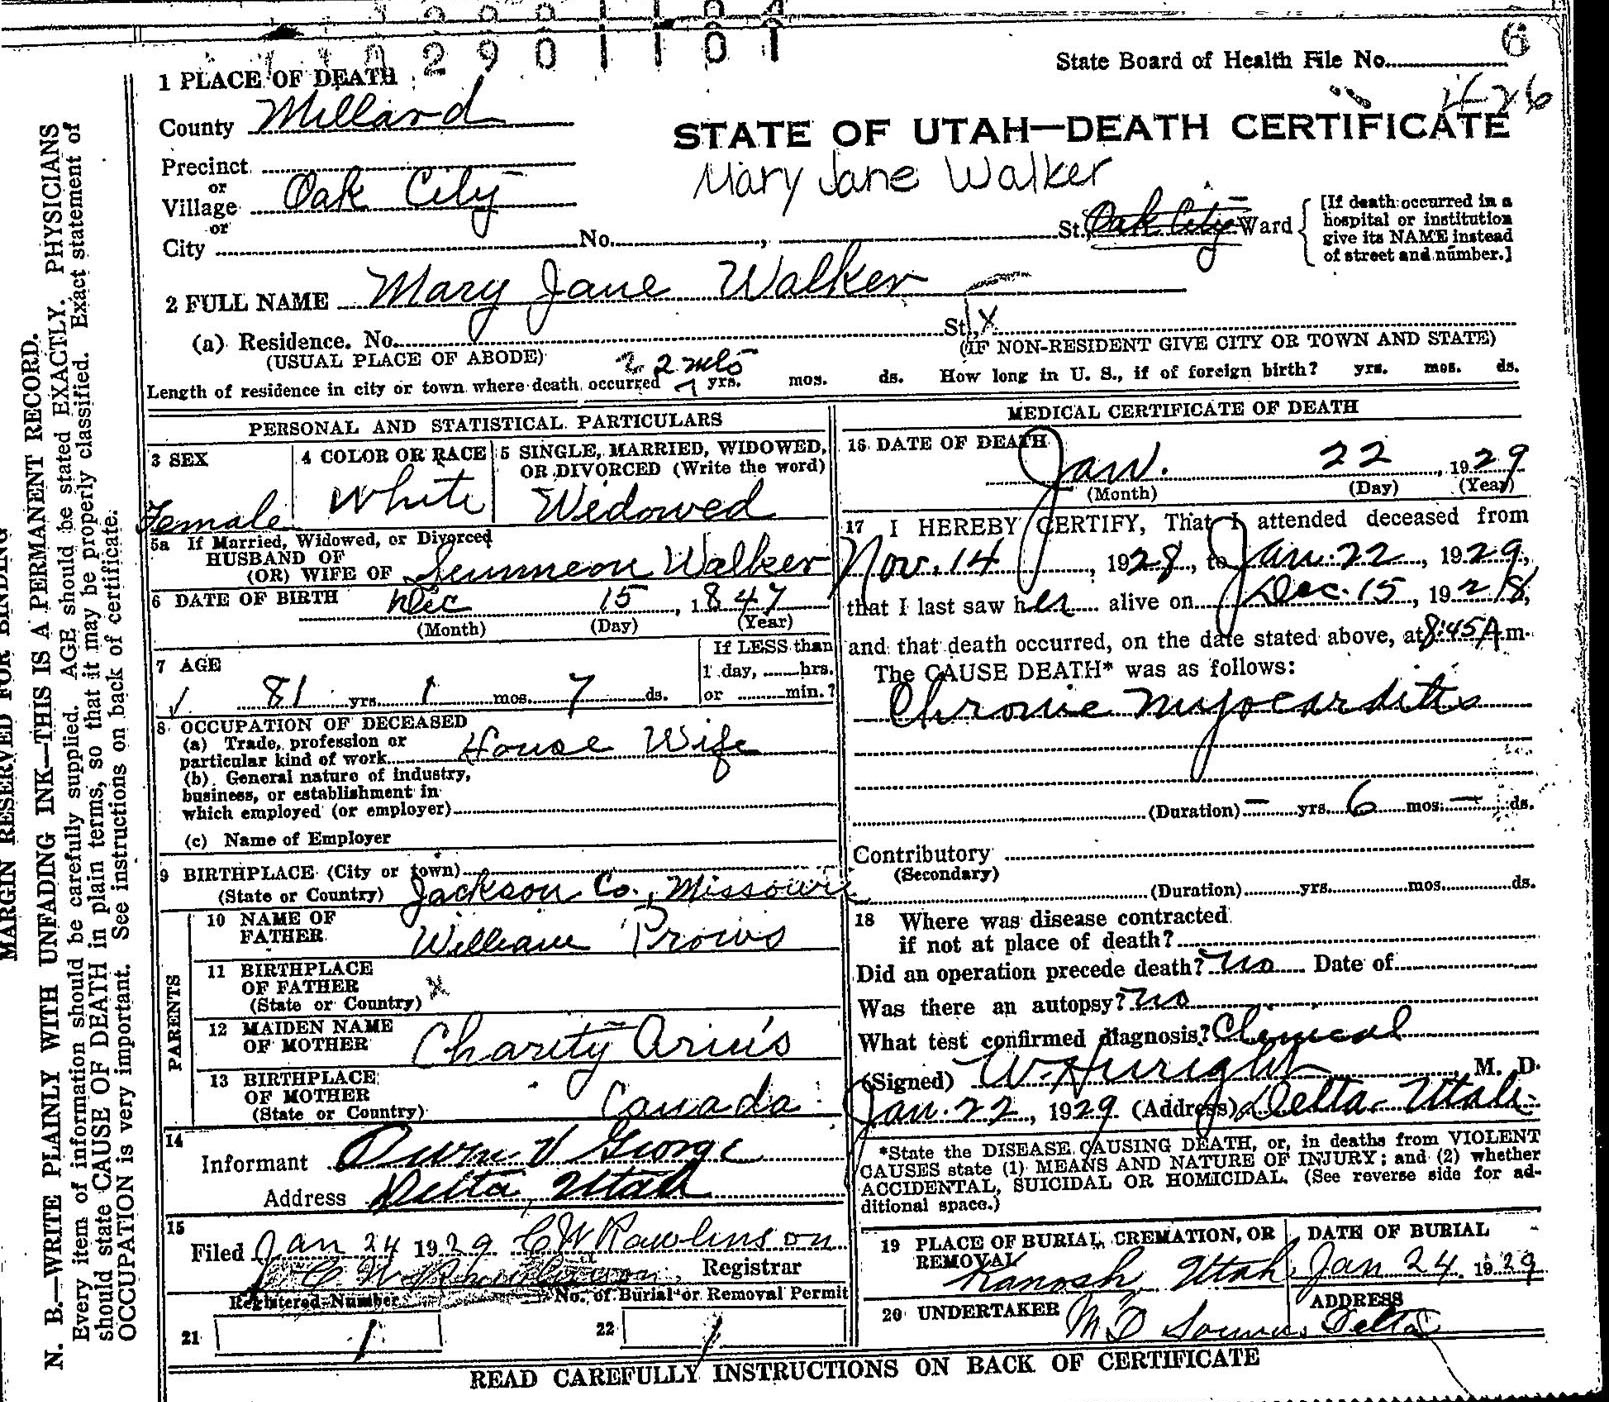 102901101
State Board of Health File No. 6
426
1 PLACE OF DEATH
County Millard
STATE OF UTAH—DEATH CERTIFICATE
Mary Jane Walker
Precinct
or
Village Oak City
or
City No. , St., Oak City Ward
[If death occurred in a hospital or institution give its NAME instead of street and number.]
2 FULL NAME Mary Jane Walker
(a) Residence. No. St., X
(USUAL PLACE OF ABODE) (IF NON-RESIDENT GIVE CITY OR TOWN AND STATE)
Length of residence in city or town where death occurred yrs. 2 mos. ds. How long in U. S., if of foreign birth? yrs. mos. ds.
PERSONAL AND STATISTICAL PARTICULARS
3 SEX Female
4 COLOR OR RACE White
5 SINGLE, MARRIED, WIDOWED, OR DIVORCED (Write the word) Widowed
5a If Married, Widowed, or Divorced
HUSBAND OF
(OR) WIFE OF Walker
6 DATE OF BIRTH Dec 15, 1847
(Month) (Day) (Year)
7 AGE 81 yrs. 1 mos. 7 ds.
If LESS than 1 day, hrs. or min.?
8 OCCUPATION OF DECEASED
(a) Trade, profession or particular kind of work House Wife
(b) General nature of industry, business, or establishment in which employed (or employer)
(c) Name of Employer
9 BIRTHPLACE (City or town)
(State or Country) Jackson Co., Missouri
PARENTS
10 NAME OF FATHER William Prows
11 BIRTHPLACE OF FATHER (State or Country) x
12 MAIDEN NAME OF MOTHER Charity Arms
13 BIRTHPLACE OF MOTHER (State or Country) Canada
14 Informant George
Address Delta, Utah
15 Filed Jan 24 1929 C W Rawlinson
Registrar
Registered Number No. of Burial or Removal Permit
21 1 22 1
MEDICAL CERTIFICATE OF DEATH
16 DATE OF DEATH Jan. 22, 1929
(Month) (Day) (Year)
17 I HEREBY CERTIFY, That I attended deceased from
Nov. 14, 1928, to Jan. 22, 1929,
that I last saw her alive on Dec. 15, 1928,
and that death occurred, on the date stated above, at 8:45 A m.
The CAUSE DEATH* was as follows:
Chronic Myocarditis
(Duration) — yrs. 6 mos. — ds.
Contributory
(Secondary)
(Duration) yrs. mos. ds.
18 Where was disease contracted
if not at place of death?
Did an operation precede death? no Date of
Was there an autopsy? no
What test confirmed diagnosis? Clinical
(Signed) M. D.
Jan. 22, 1929 (Address) Delta Utah.
*State the DISEASE CAUSING DEATH, or, in deaths from VIOLENT
CAUSES state (1) MEANS AND NATURE OF INJURY; and (2) whether
ACCIDENTAL, SUICIDAL OR HOMICIDAL. (See reverse side for ad-
ditional space.)
19 PLACE OF BURIAL, CREMATION, OR REMOVAL Kanosh, Utah
DATE OF BURIAL Jan 24, 1929
20 UNDERTAKER
ADDRESS Delta
READ CAREFULLY INSTRUCTIONS ON BACK OF CERTIFICATE
MARGIN RESERVED FOR BINDING
N. B.—WRITE PLAINLY WITH UNFADING INK—THIS IS A PERMANENT RECORD.
Every item of information should be carefully supplied. AGE should be stated EXACTLY. PHYSICIANS
should state CAUSE OF DEATH in plain terms, so that it may be properly classified. Exact statement of
OCCUPATION is very important. See instructions on back of certificate.